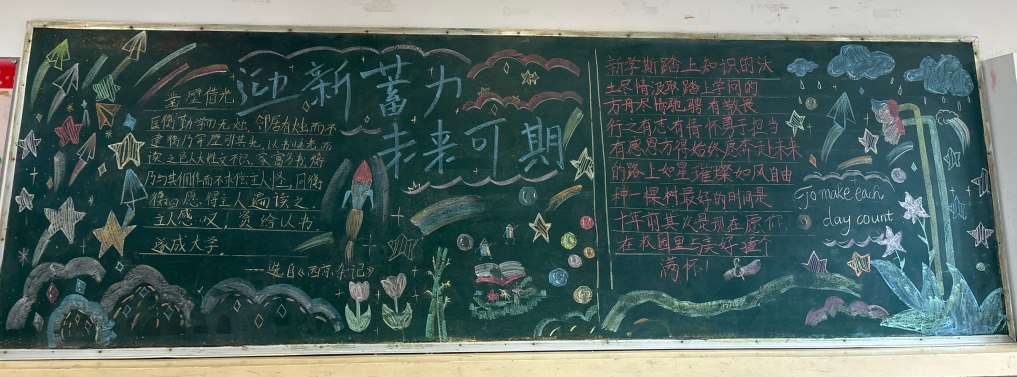 迎新蓄力
未来可期
凿壁借光
匡衡勤学而无烛,邻居有烛而不
逮,衡乃穿壁引其光,以书映光而
读之。邑人大姓文不识,家富多书,衡
乃与其佣作而不求偿。主人怪,问衡,
衡曰:愿得主人遍读之。
主人感叹!资给以书,
遂成大学。
---选自《西京杂记》
新学期踏上知识的沃
土尽情汲取路上学问的
方舟尽情驰骋有敬畏
行之有志有情怀勇于担当
有感恩方得始终愿奔赴未来
的路上如星璀璨如风自由
种一棵树最好的时间是
十年前其次是现在愿你
在校园里与美好撞个
满怀!
To make each
day count